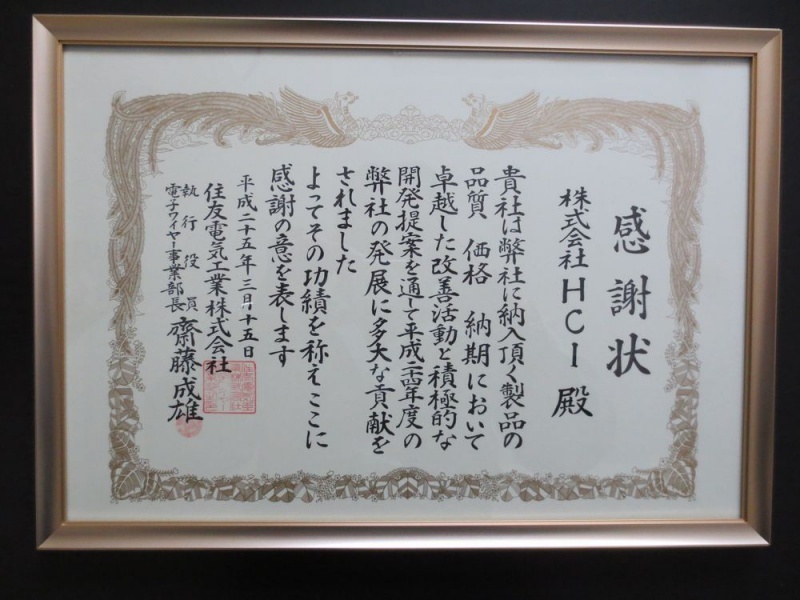 感謝状
株式会社HCI殿
貴社は弊社に納入頂く製品の
品質 価格 納期において
卓越した改善活動と積極的な
開発提案を通して平成二四年度の
弊社の発展に多大な貢献を
されました
よってその功績を称えここに
感謝の意を表します
平成二十五年三月十五日
住友電気工業株式会社
執行役員
電子ワイヤー事業部長 齋藤成雄